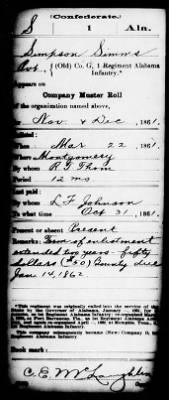 (Confederate.)
S 1 Ala.
Simpson Simms
Pvt., (Old) Co. G, 1 Regiment Alabama
Infantry.*
Appears on
Company Muster Roll
of the organization named above,
for Nov & Dec, 1861.
Enlisted:
When Mar 22, 1861.
Where Montgomery
By whom R. G. Thom
Period 12 ms
Last paid:
By whom L. F. Johnson
To what time Oct 31, 1861.
Present or absent Present
Remarks: Term of enlistment
extended two years - fifty
dollars ($50) bounty due
Jan 14, 1862.
*This regiment was originally called into the service of the State
Book mark:
C. E. McLaughlin